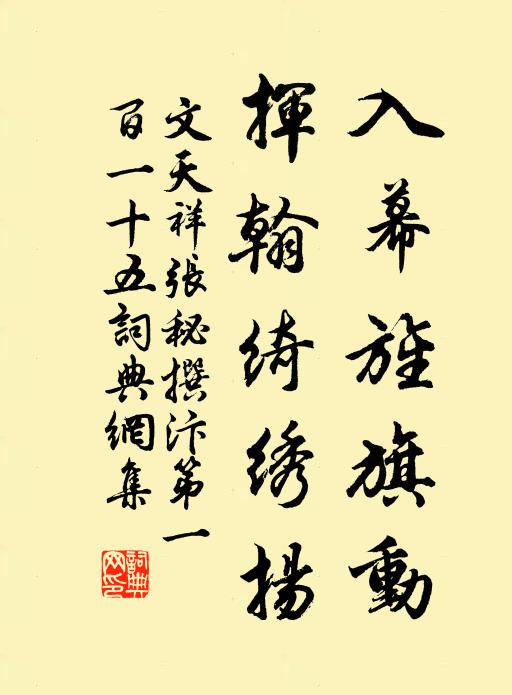 入幕旌旗動
揮翰綺绣揚
文天祥張秘撰汴第一
百一十五詞典網集
詞典
网印